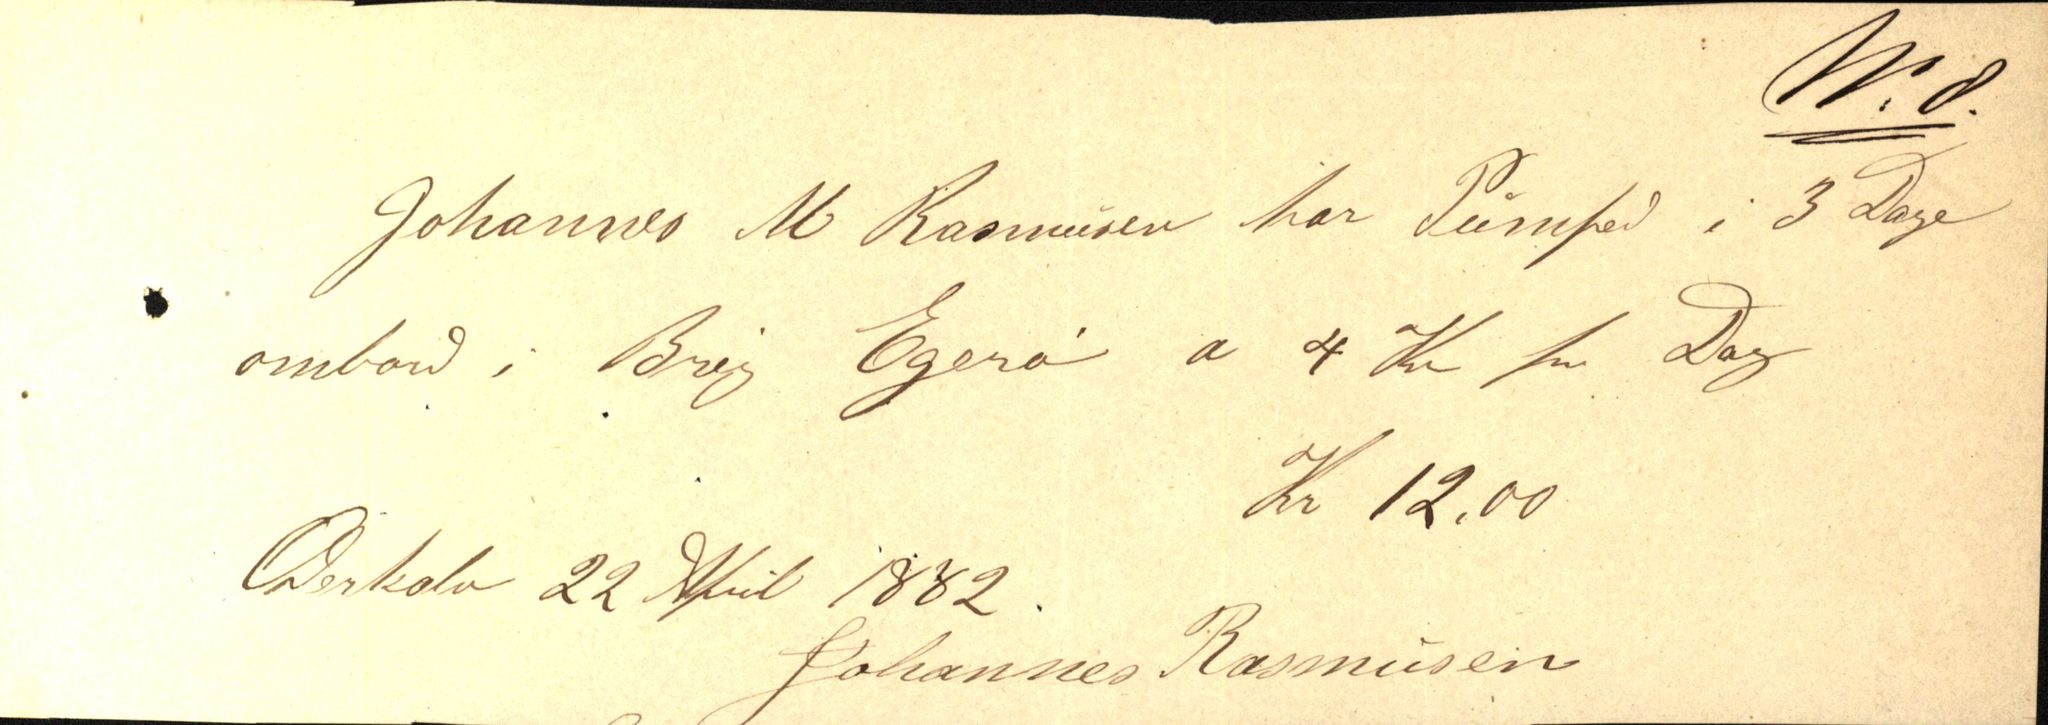 N. 8.
Johannes M Rasmusen har Pumped i 3 Dage
ombord i Brig Egerö a 4 Kr pr Dag
Kr 12.00
22 April 1882.
Johannes Rasmusen